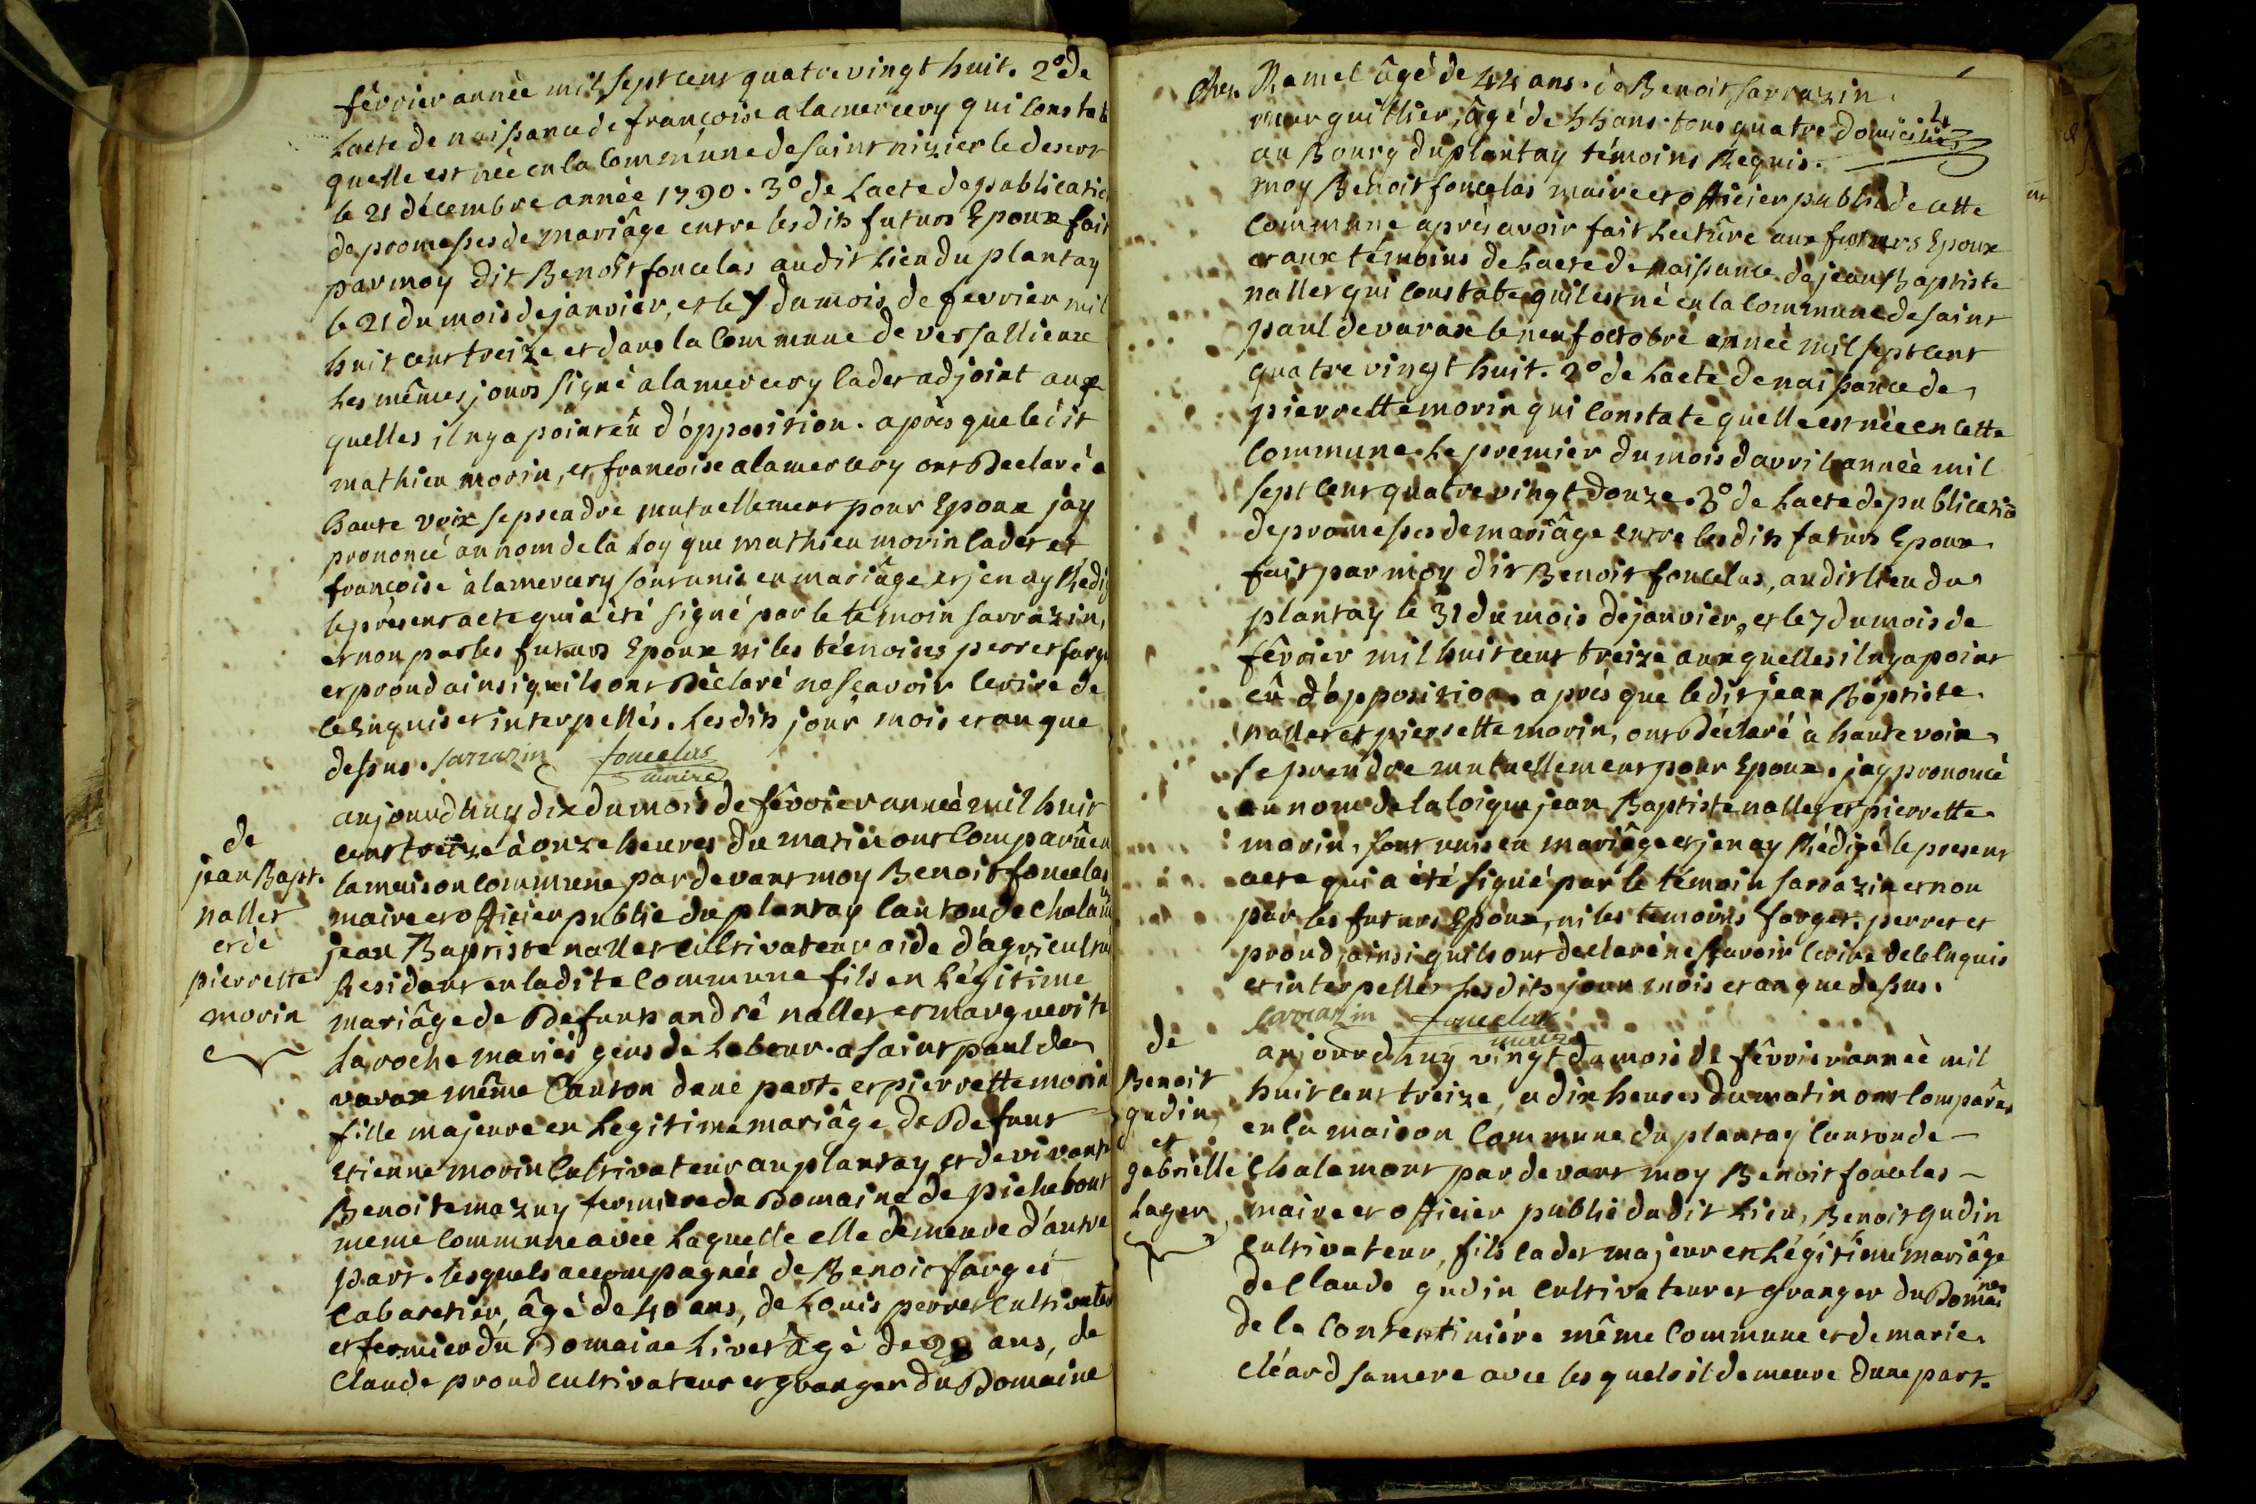 février année mil sept cent quatre vingt huit. 2° de
Lacte de naissance de françoise alamercery qui Constate
quelle est née en la Commune de saint nizier le desert
le 21 décembre année 1790. 3° de Lacte de publication
de promesses de mariâge entre lesdits futurs Epoux fait
par moy dit Benoît foucelas audit Lieu du plantay
le 21 du mois de janvier, et le 7 du mois de fevrier mil
huit cent treize et dans la Commune de versallieux
Les mêmes jours signé alamercery Cadet adjoint aux
quelles il ny a point eû d'opposition. après que lédit
mathieu morin, et francoise alamercery ont Declaré a
haute voix se prendre mutuellement pour Epoux jay
prononcé au nom de la Loy que mathieu morin Cadet et
françoise àlamercery sont unis en mariâge et jen ay Redigé
le présent acte qui a été signé par le témoin sarrazin,
et non par les futurs Epoux ni les témoins perret farget
et proud ainsi quils ont Déclaré ne sçavoir Ecrire de
ce Enquis et interpellés. Lesdits jour mois et an que
dessus. sarrazin foucelas
maire
aujourdhuy dix du mois de fêvrier année mil huit
cent treize à onze heures du matin ont Comparû en
la maison Commune par devant moy Benoit foucelas
maire et officier public du plantay Canton de Chalamont
jean Baptiste nallet Cultivateur aide d'agriculture
Residant en ladite Commune fils en Légitime
mariâge de Defunts andré nallet et marguerite
Laroche mariés gens de Labour. a saint paul de
varax même Canton dune part. et pierrette morin
fille majeure en Legitime mariâge de Defunt
Etienne morin Cultivateur au plantay et de vivante
Benoite mazuy fermiere du Domaine de pichebout
meme Commune avec Laquelle elle demeure d'autre
part. lesquels accompagnés de Benoit farget
Cabaretier, âgé de 40 ans, de Louis perret Cultivateur
et fermier du Domaine Livet âgé de ans, de
Claude proud cultivateur et granger du Domaine
de
jean Bapt.
nallet
et de
pierrette
morin
Ramel âgé de 44 ans. de Benoit sarrazin
marguillier, âgé de hh ans. tous quatre domiciliez
au Bourg du plantay témoins Requis.
moy Benoit foucelas maire et officier public de cette
Commune après avoir fait Lectûre aux futurs Epoux
et aux témoins de Lacte de naissance de jean Baptiste
nallet qui Constate quil est né en la Commune de saint
paul de varax le neuf octobre année mil sept cent
quatre vingt huit. 2° de Lacte de naissance de
pierrette morin qui Constate quelle est née en cette
Commune Le premier du mois davril année mil
sept cent quatre vingt douze. 3° de Lacte de publication
de promesses de mariâge entre lesdits futurs Epoux
fait par moy dit Benoit foucelas, audit lieu du
plantay le 31 du mois de janvier, et le 7 du mois de
fêvrier mil huit cent treize auxquelles il ny a point
eû d'opposition. après que ledit jean Baptiste
nallet et pierrette morin, ont déclaré à haute voix
se prendre mutuellement pour Epoux. jay prononcé
au nom de la loi que jean Baptiste nallet et pierrette
morin, sont unis en mariâge et jen ay Rédigé le present
acte qui a été signé par le témoin sarrazin et non
par les futurs Epoux, ni les temoins farget. perret et
proud, ainsi quils ont declaré ne sçavoir Ecrire de ce Enquis
et interpellés Lesdits jour mois et an que dessus.
sarrazin foucelas
maire
aujourdhuy vingt du mois de fêvrier année mil
huit cent treize, a dix heures du matin ont Comparû
en la maison Commune du plantay Canton de
Chalamont par devant moy Benoit foucelas
maire et officier public dudit Lieu, Benoit gudin
Cultivateur, fils Cadet majeur en Légitime mariâge
de Claude gudin Cultivateur et granger du Domaine
de la Contentiniére même Commune et de marie
Cléard sa mere avec lesquels il demeure dune part.
de
Benoit
gudin
et
gabrielle
Lager